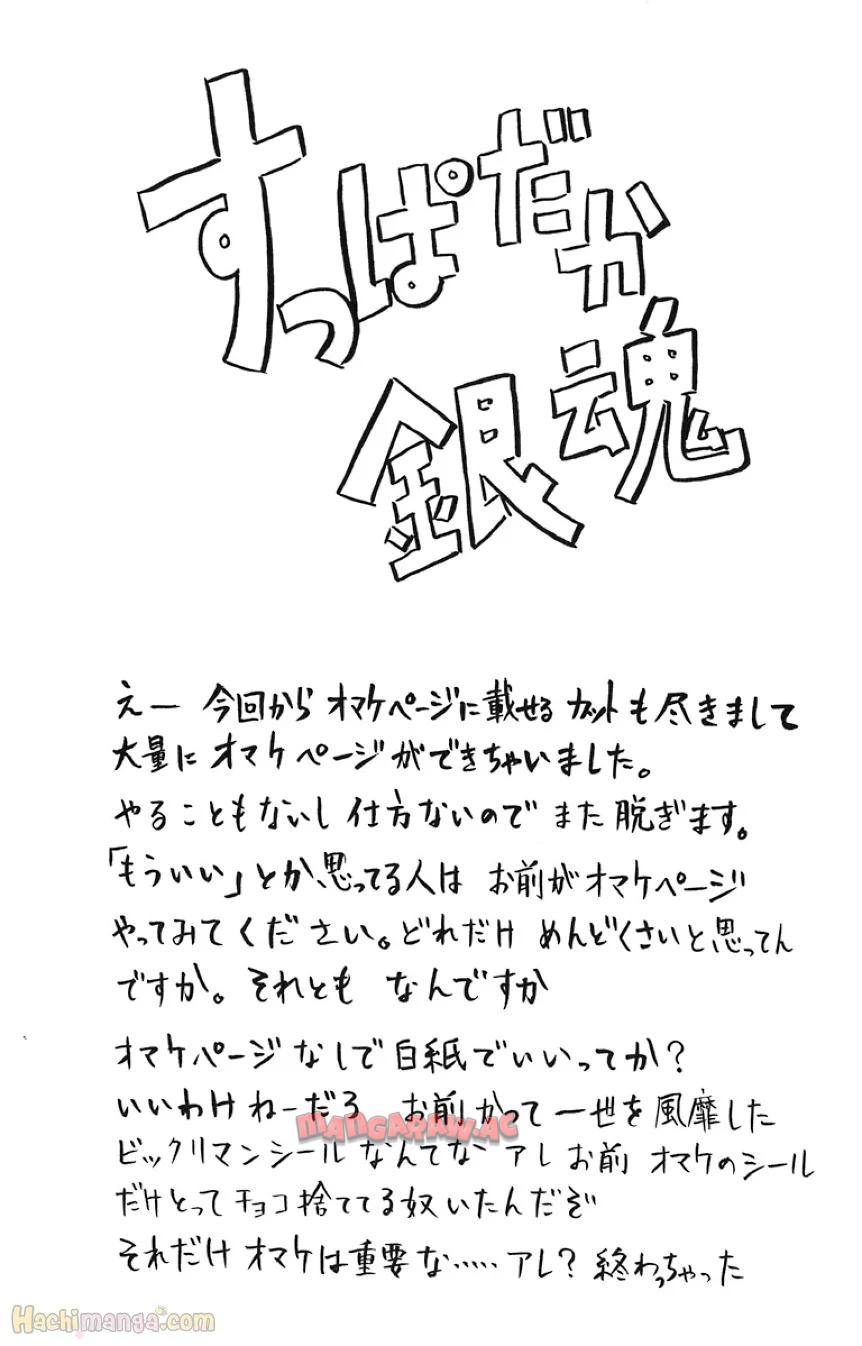 すっぱだか
銀魂
えー 今回から オマケページに載せる カットも尽きまして
大量に オマケページができちゃいました。
やることもないし 仕方ないので また 脱ぎます。
「もういい」とか思ってる人は お前がオマケページ
やってみてください。どれだけ めんどくさいと思ってん
ですか。それとも なんですか
オマケページなしで白紙でいいってか?
いいわけねーだろ お前かって一世を風靡した
ビックリマンシールなんてな アレお前 オマケのシール
だけとって チョコ捨ててる奴いたんだぞ
それだけ オマケは重要な…… アレ? 終わっちゃった
MANGARAW.AC
Hachimanga.com